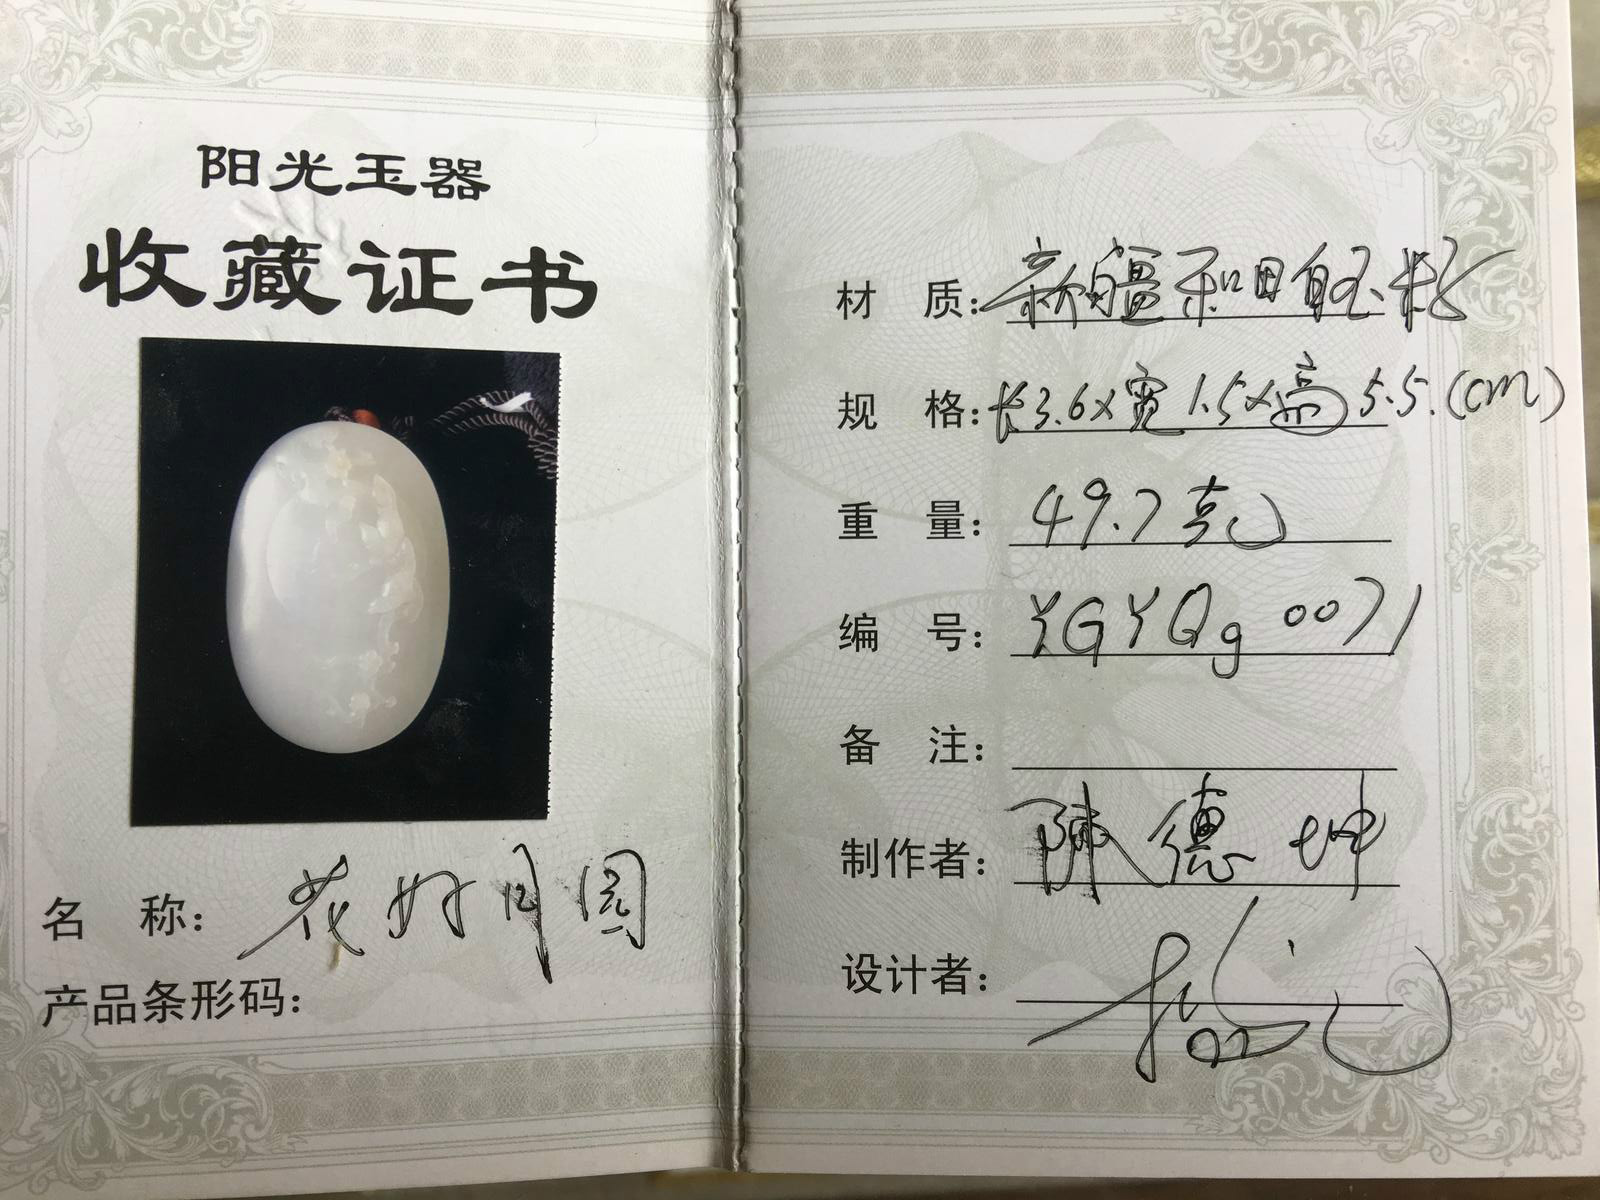 阳光玉器
收藏证书
名 称：花好月圆
产品条形码：
材 质：新疆和田白玉籽
规 格：长3.6x宽1.5x高5.5.(cm)
重 量：49.7克
编 号：YGYQg 0071
备 注：
制作者：陳德坤
设计者：